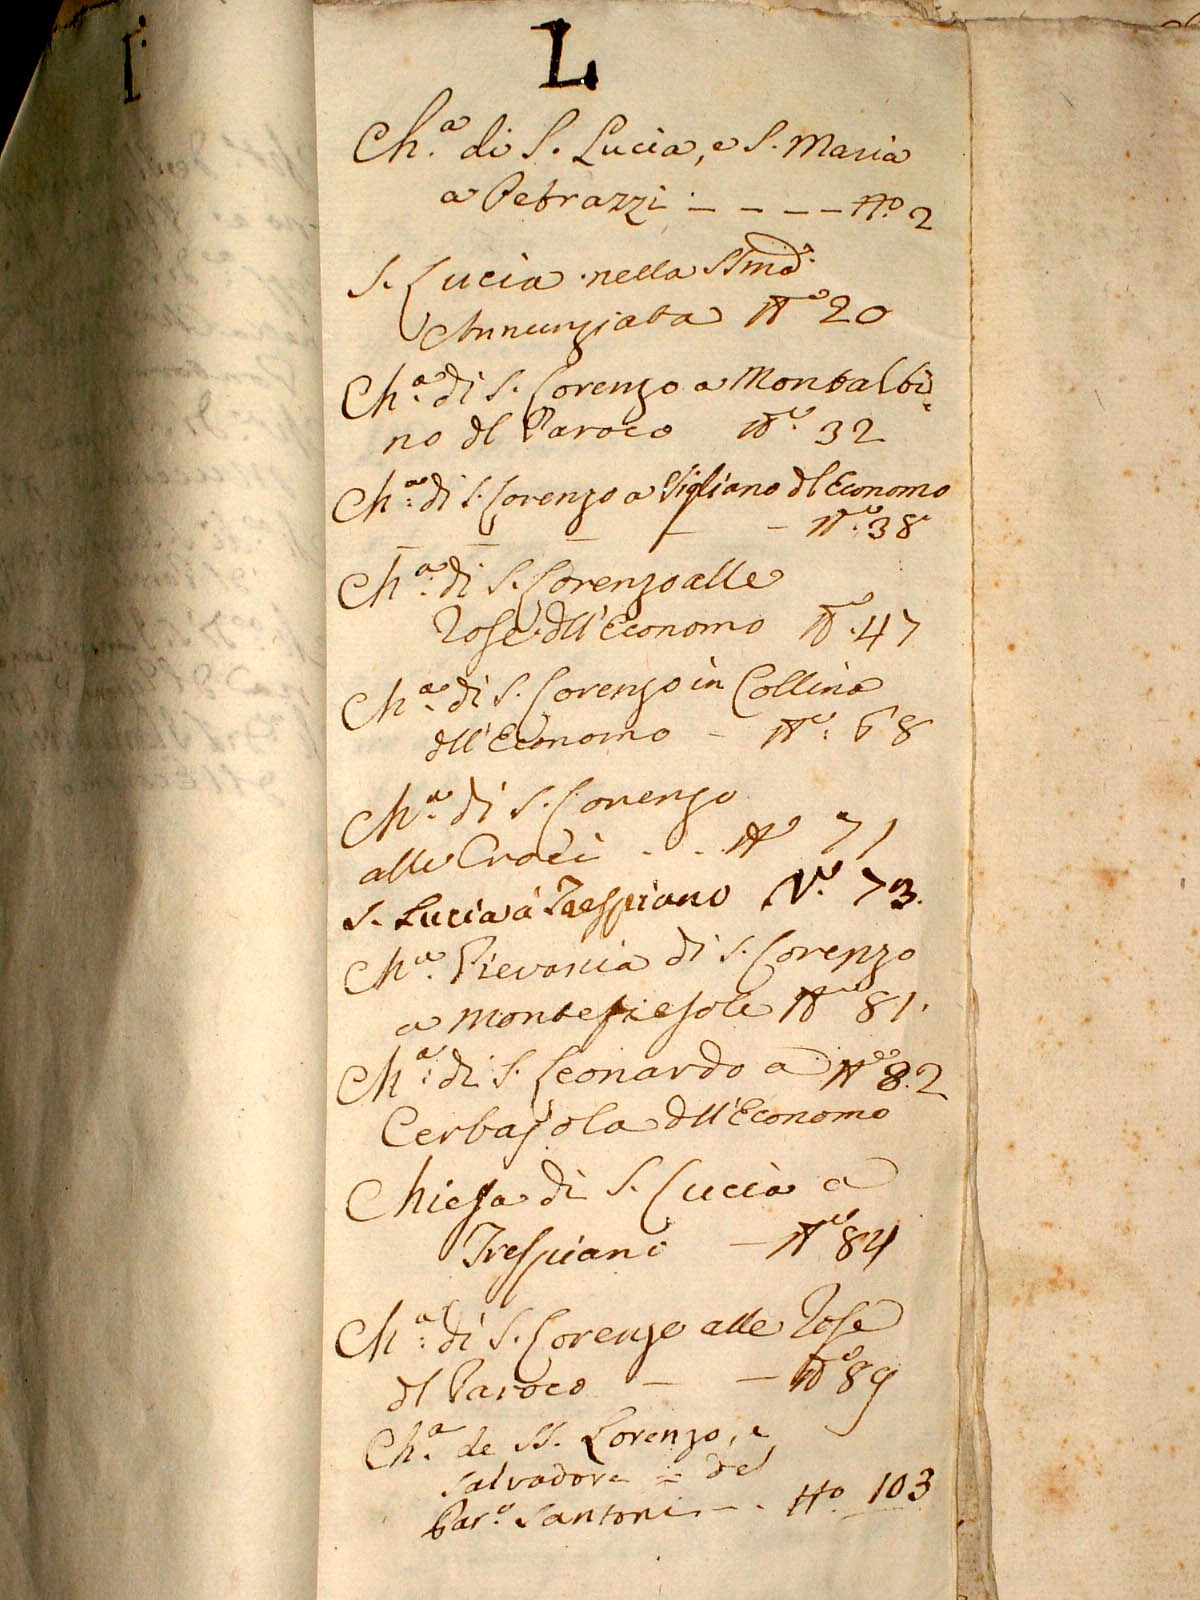 I:
L
Ch.ª di S. Lucia, e S. Maria
a Petrazzi - - - - Nº. 2
S. Lucia nella SSmã:
Annunziata Nº 20
Ch.ª di S. Lorenzo a Montalbi=
no dl Paroco Nº. 32
Ch.ª di S. Lorenzo a Vigliano dl Economo
- - - - - Nº. 38
Ch.ª di S. Lorenzo alle
Rose dll'Economo Nº. 47
Ch.ª di S. Lorenzo in Collina
dll'Economo - Nº. 68
Ch.ª di S. Lorenzo
alle Croci . . Nº 71
S. Lucia à Trespiano Nº. 73.
Ch.ª Pievania di S. Lorenzo
a Montefiesole Nº 81.
Ch.ª di S. Leonardo a Nº 82
Cerbajola dll'Economo
Chiesa di S. Lucia a
Trespiano - Nº 84
Ch.ª di S. Lorenzo alle Rose
dl Paroco - - Nº 89
Ch.ª de SS. Lorenzo, e
Salvadore = del
Par.º Santoni - . Nº. 103